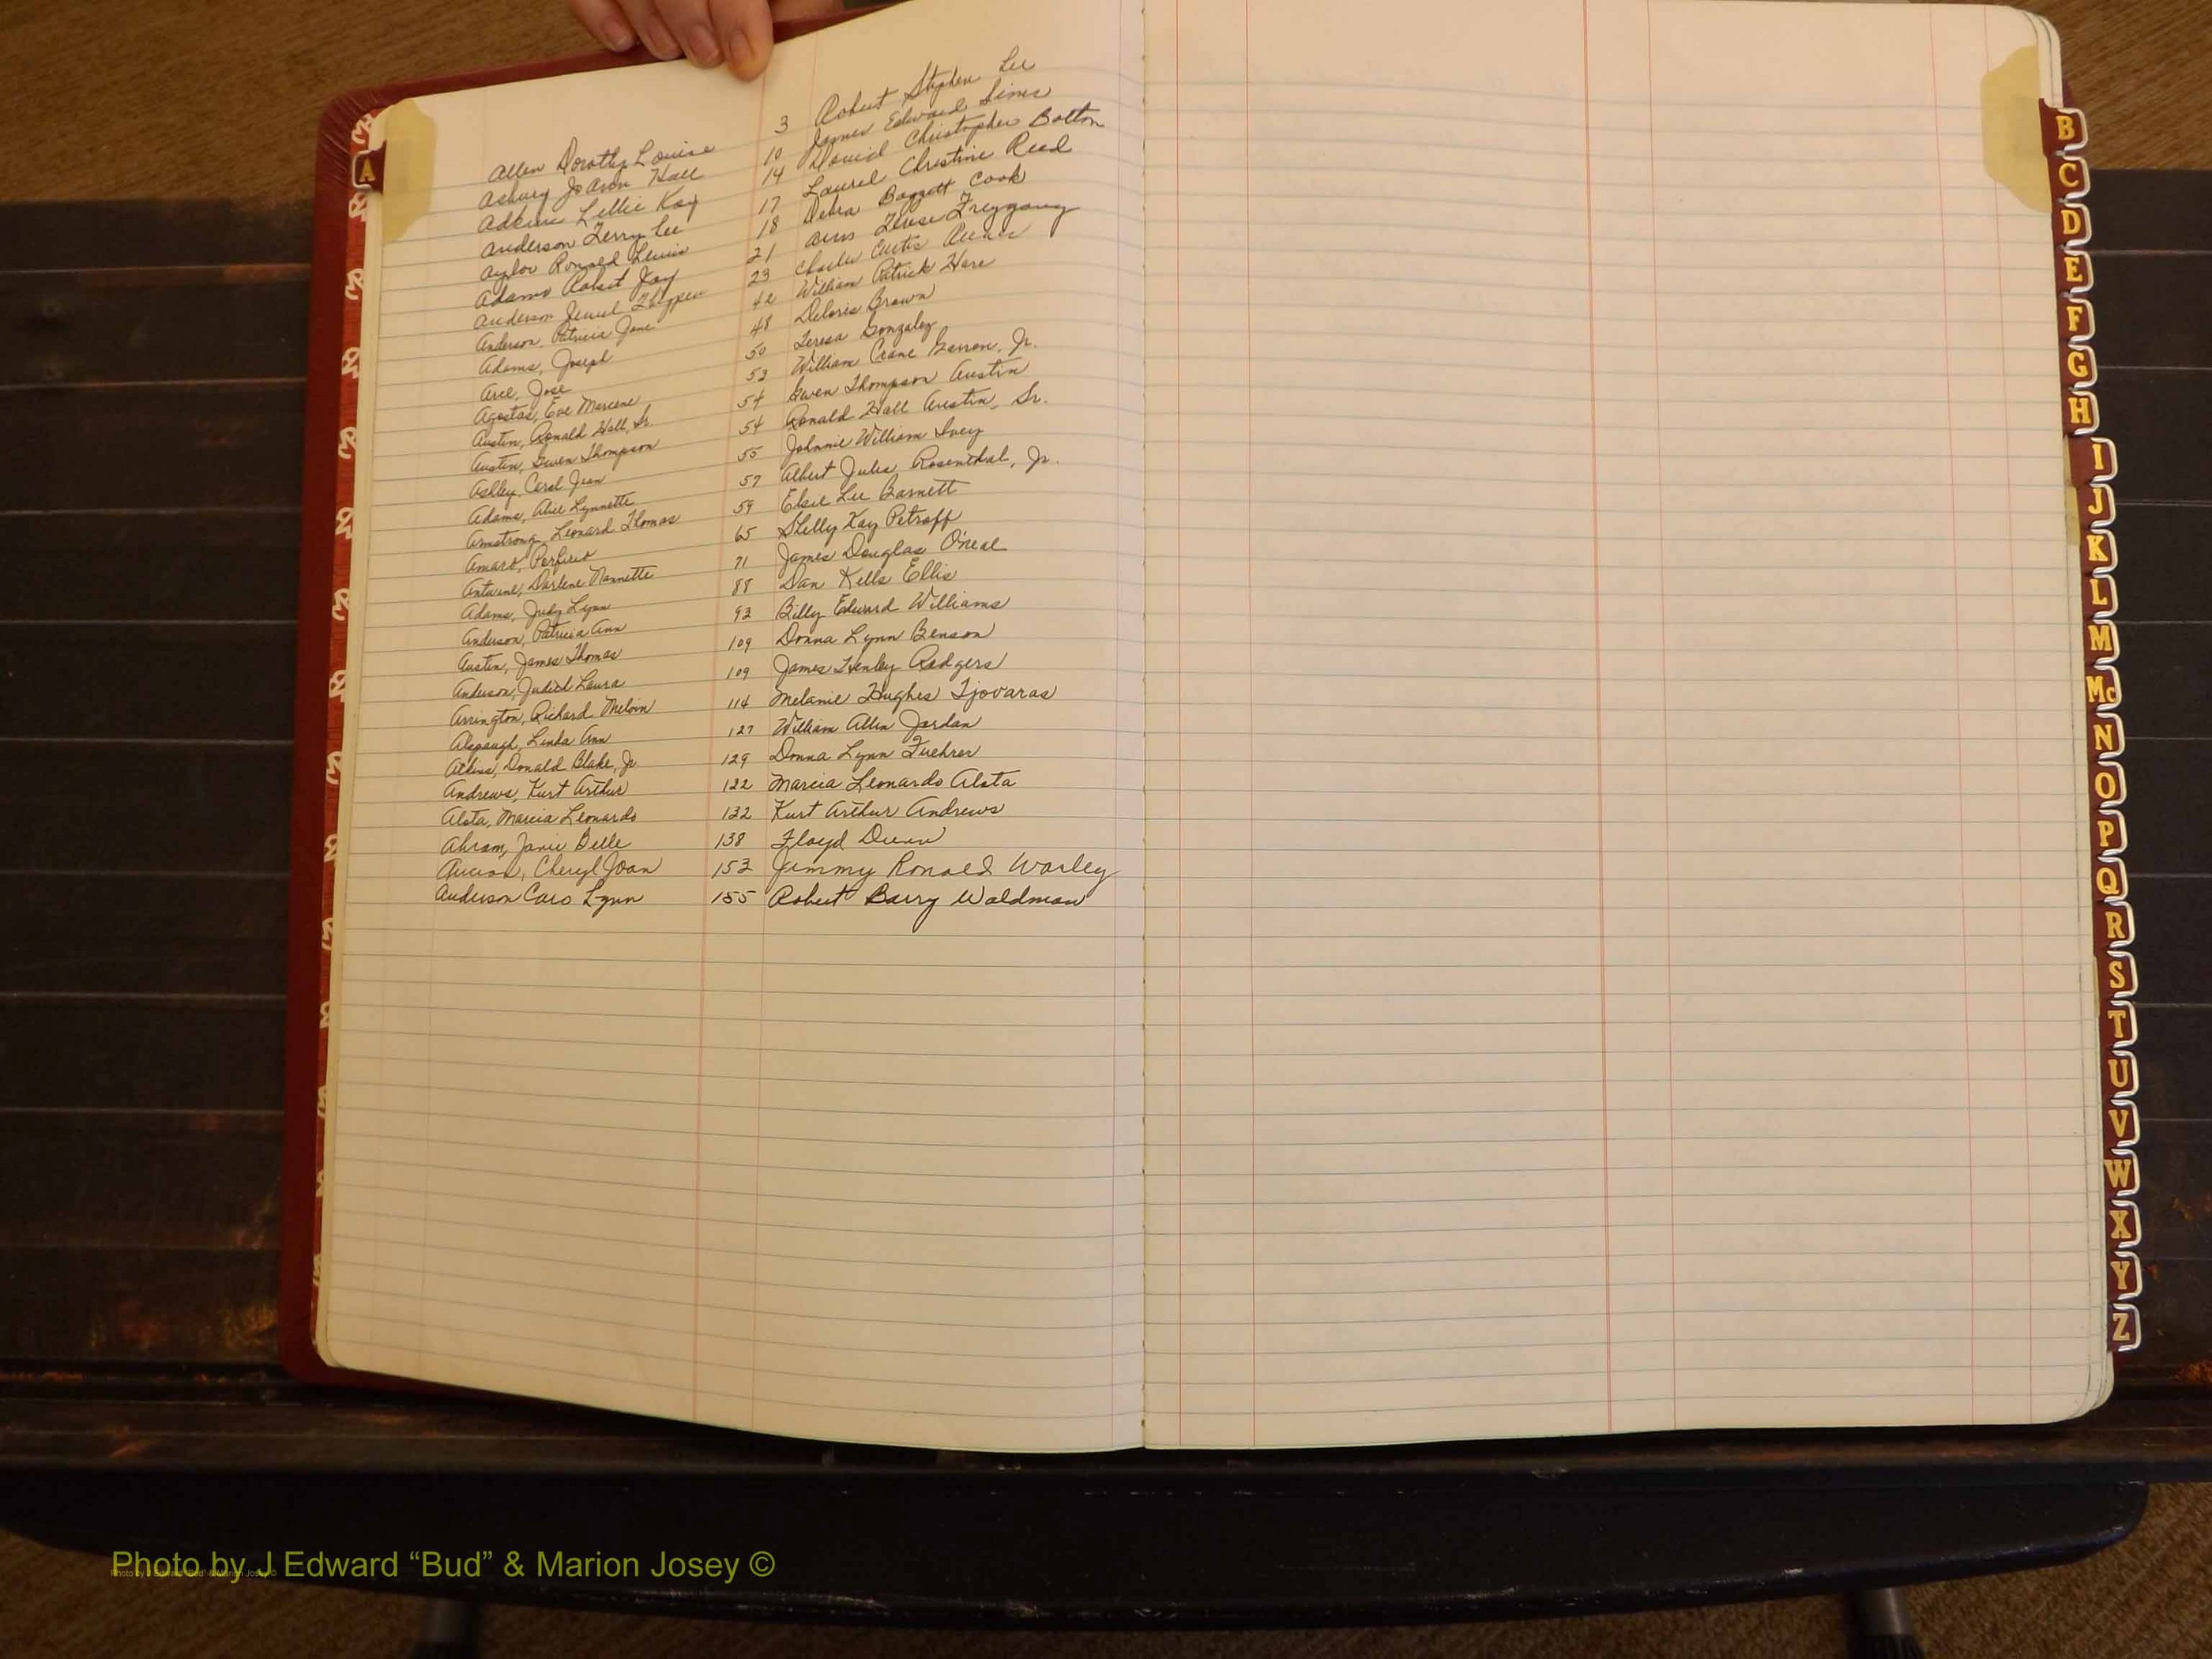 Allen Dorothy Louise 3 Robert Stephen Lee
Asbury JoAnn Hall 10 James Edward Sines
Adkins Lillie Kay 14 David Christopher Bolton
Anderson Terry Lee 17 Laurel Christine Reed
Aylor Ronald Lewis 18 Debra Baggett Cook
Adams Robert Jay 21 Ann Terese Freygang
Anderson Jewel 23 Charles Curtis
Anderson, Patricia Jane 42 William Patrick Hare
Adams, Joseph 48 Deloris Brown
Arce, Jose 50 Teresa Gonzalez
Agostas, Eve Marcene 53 William Crane Garson, Jr.
Austin, Ronald Hall, Sr. 54 Gwen Thompson Austin
Austin, Gwen Thompson 54 Ronald Hall Austin, Sr.
Ashley, Carol Jean 55 Johnnie William Ivey
Adams, Alice Lynnette 57 Albert Jules Rosenthal, Jr.
Armstrong, Leonard Thomas 59 Elsie Lee Barnett
Amaro, Porfirio 65 Shelly Kay Petroff
Antoine, Darlene Nannette 71 James Douglas O'neal
Adams, Judy Lynn 88 Dan Kells Ellis
Anderson, Patricia Ann 93 Billy Edward Williams
Austin, James Thomas 109 Donna Lynn Benson
Anderson, Judith Laura 109 James Henley Rodgers
Arrington, Richard Melvin 114 Melanie Hughes Tjovaras
Alspaugh, Linda Ann 127 William Allen Jordan
Atkins, Donald Blake, Jr. 129 Donna Lynn Fuehrer
Andrews, Kurt Arthur 132 Marcia Leonardo Alsta
Alsta, Marcia Leonardo 132 Kurt Arthur Andrews
Ahram, Janie Belle 138 Floyd Dunn
Cheryl Joan 153 Jimmy Ronald Worley
Anderson Caro Lynn 155 Robert Barry Waldman
A
B
C
D
E
F
G
H
I
J
K
L
M
Mc
N
O
P
Q
R
S
T
U
V
W
X
Y
Z
Photo by J Edward “Bud” & Marion Josey ©
Photo by J Edward “Bud” & Marion Josey ©